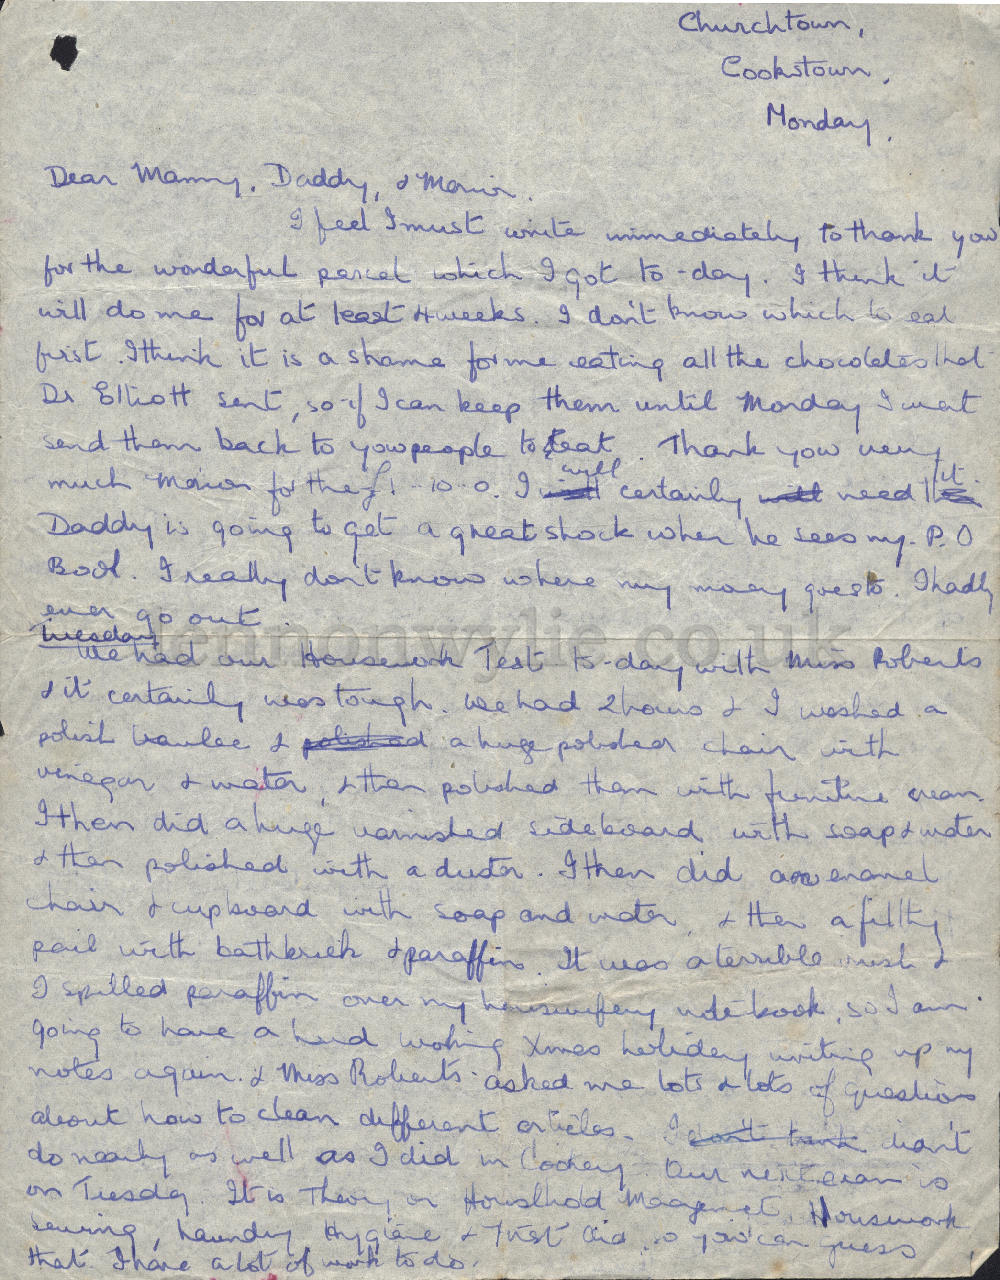 Churchtown,
Cookstown,
Monday.
Dear Mammy, Daddy, & Marion.
I feel I must write immediately to thank you
for the wonderful parcel which I got to-day. I think it
will do me for at least 4 weeks. I don't know which to eat
first. I think it is a shame for me eating all the chocolates that
Dr Elliott sent, so if I can keep them until Monday I must
send them back to you people to eat. Thank you very
much Marion for the £1-10-0. I will certainly need it.
Daddy is going to get a great shock when he sees my P.O
Book. I really don't know where my money goes to. I hadly
ever go out.
lennonwylie.co.uk
Tuesday
We had our Housework Test to-day with Miss Roberts
& it certainly was tough. We had 2 hours & I washed a
polish & polished a huge polished chair with
vinegar & water, & then polished them with furniture cream.
I then did a huge varnished sideboard with soap & water
& then polished with a duster. I then did an enamel
chair & cupboard with soap and water, & then a filthy
pail with bathbrick & paraffin. It was a terrible rush &
I spilled paraffin over my housewifery notebook, so I am
going to have a hard working Xmas holiday writing up my
notes again. & Miss Roberts asked me lots & lots of questions
about how to clean different articles. I don't think didn't
do nearly as well as I did in Cookery. Our next exam is
on Tuesday. It is Theory on Household Management, Housework
Sewing, Laundry Hygiene & First Aid, so you can guess
that I have a lot of work to do.